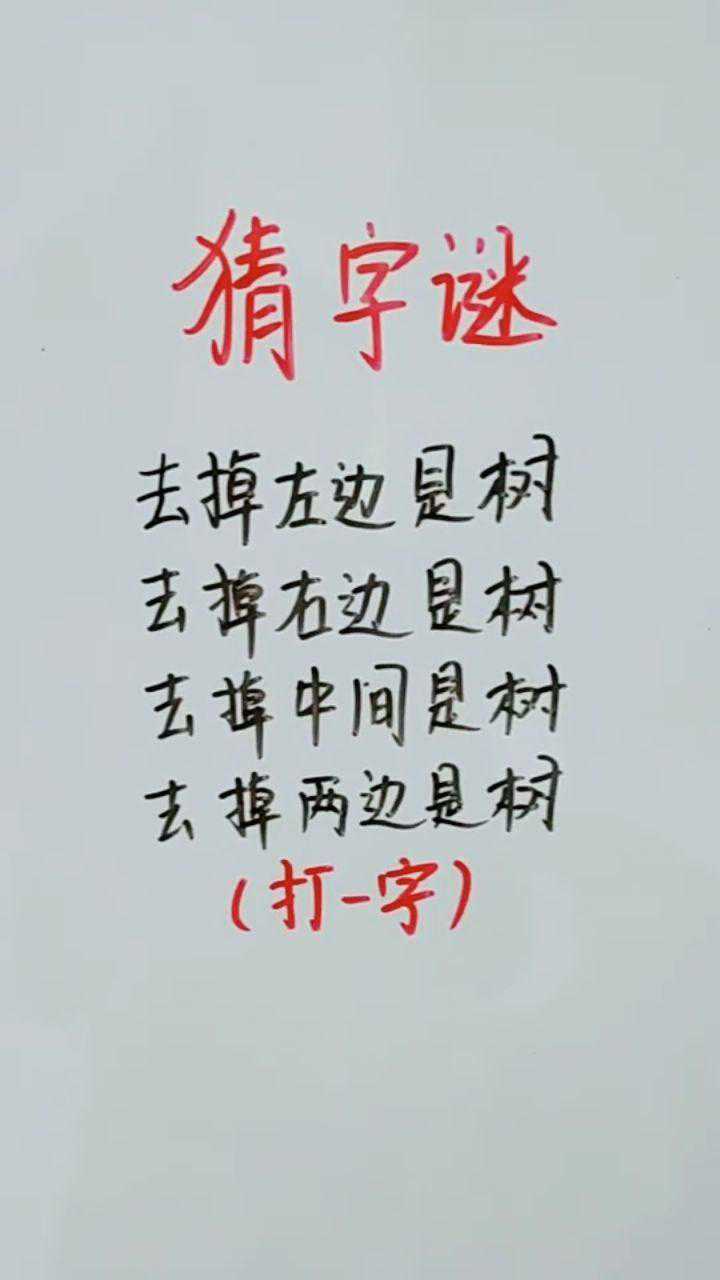 猜字谜
去掉左边是树
去掉右边是树
去掉中间是树
去掉两边是树
(打一字)